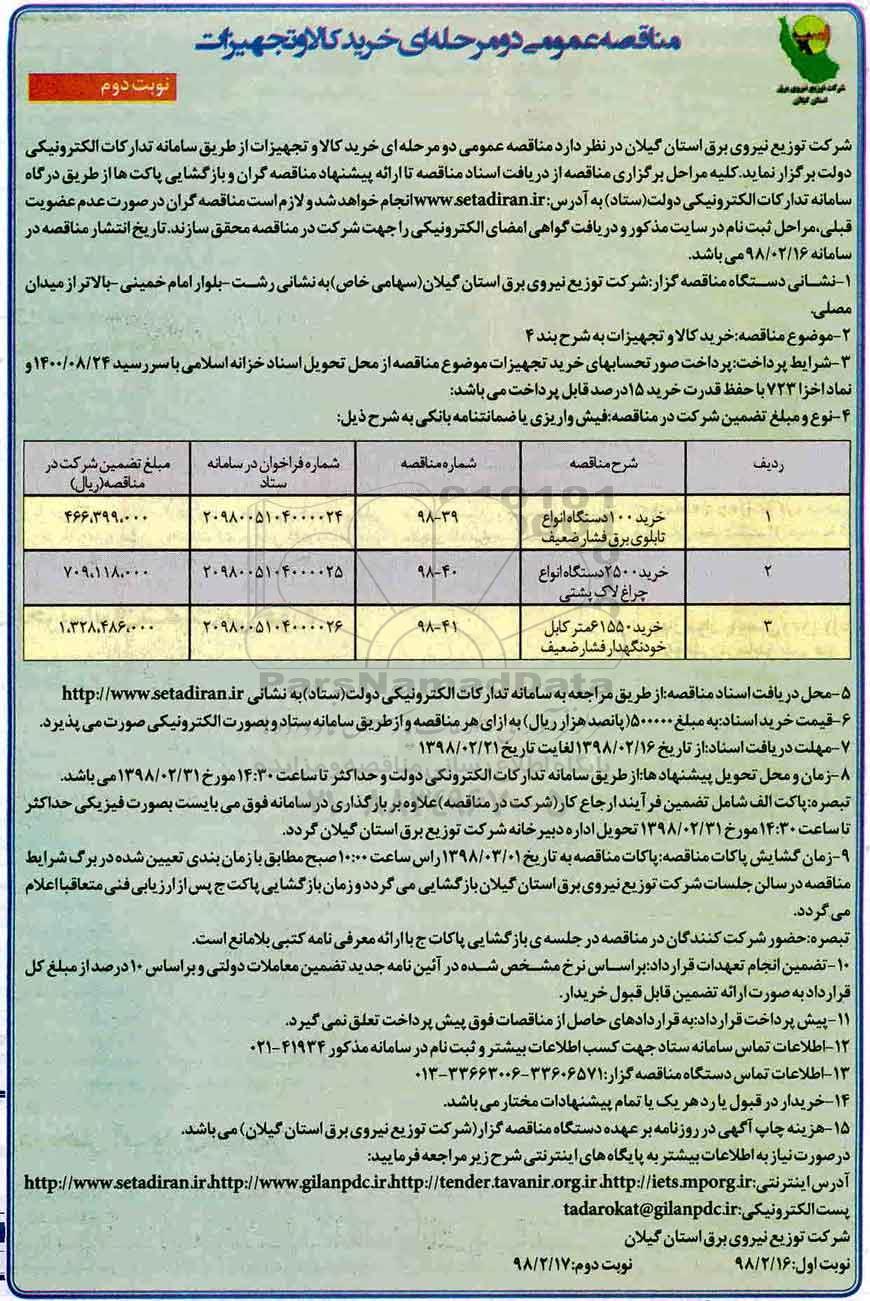 مناقصه عمومی دو مرحله‌ای خرید کالا و تجهیزات
شرکت توزیع نیروی برق
استان گیلان
نوبت دوم
شرکت توزیع نیروی برق استان گیلان در نظر دارد مناقصه عمومی دو مرحله ای خرید کالا و تجهیزات از طریق سامانه تدارکات الکترونیکی
دولت برگزار نماید.کلیه مراحل برگزاری مناقصه از دریافت اسناد مناقصه تا ارائه پیشنهاد مناقصه گران و بازگشایی پاکت ها از طریق درگاه
سامانه تدارکات الکترونیکی دولت(ستاد) به آدرس:www.setadiran.ir انجام خواهد شد و لازم است مناقصه گران در صورت عدم عضویت
قبلی،مراحل ثبت نام در سایت مذکور و دریافت گواهی امضای الکترونیکی را جهت شرکت در مناقصه محقق سازند.تاریخ انتشار مناقصه در
سامانه ۹۸/۰۲/۱۶ می باشد.
۱-نشانی دستگاه مناقصه گزار:شرکت توزیع نیروی برق استان گیلان(سهامی خاص)به نشانی رشت-بلوار امام خمینی-بالاتر از میدان
مصلی.
۲-موضوع مناقصه:خرید کالا و تجهیزات به شرح بند ۴
۳-شرایط پرداخت:پرداخت صورتحسابهای خرید تجهیزات موضوع مناقصه از محل تحویل اسناد خزانه اسلامی با سررسید ۱۴۰۰/۰۸/۲۴ و
نماد اخزا ۷۲۳ با حفظ قدرت خرید ۱۵درصد قابل پرداخت می باشد:
۴-نوع و مبلغ تضمین شرکت در مناقصه:فیش واریزی یا ضمانتنامه بانکی به شرح ذیل:
ردیف شرح مناقصه شماره مناقصه شماره فراخوان در سامانه ستاد مبلغ تضمین شرکت در مناقصه(ریال)
۱ خرید ۱۰۰دستگاه انواع تابلوی برق فشار ضعیف ۹۸-۳۹ ۲۰۹۸۰۰۵۱۰۴۰۰۰۰۲۴ ۴۶۶،۳۹۹،۰۰۰
۲ خرید ۲۵۰۰دستگاه انواع چراغ لاک پشتی ۹۸-۴۰ ۲۰۹۸۰۰۵۱۰۴۰۰۰۰۲۵ ۷۰۹،۱۱۸،۰۰۰
۳ خرید ۶۱۵۵۰متر کابل خودنگهدار فشار ضعیف ۹۸-۴۱ ۲۰۹۸۰۰۵۱۰۴۰۰۰۰۲۶ ۱،۳۲۸،۴۸۶،۰۰۰
ParsNamadData
۵-محل دریافت اسناد مناقصه:از طریق مراجعه به سامانه تدارکات الکترونیکی دولت(ستاد)به نشانی http://www.setadiran.ir
۶-قیمت خرید اسناد:به مبلغ ۵۰۰۰۰۰(پانصد هزار ریال) به ازای هر مناقصه و از طریق سامانه ستاد و بصورت الکترونیکی صورت می پذیرد.
۷-مهلت دریافت اسناد:از تاریخ ۱۳۹۸/۰۲/۱۶ لغایت تاریخ ۱۳۹۸/۰۲/۲۱
۸-زمان و محل تحویل پیشنهادها:از طریق سامانه تدارکات الکترونکی دولت و حداکثر تا ساعت ۱۴:۳۰ مورخ ۱۳۹۸/۰۲/۳۱ می باشد.
تبصره:پاکت الف شامل تضمین فرآیند ارجاع کار(شرکت در مناقصه)علاوه بر بارگذاری در سامانه فوق می بایست بصورت فیزیکی حداکثر
تا ساعت ۱۴:۳۰ مورخ ۱۳۹۸/۰۲/۳۱ تحویل اداره دبیرخانه شرکت توزیع برق استان گیلان گردد.
۹-زمان گشایش پاکات مناقصه:پاکات مناقصه به تاریخ ۱۳۹۸/۰۳/۰۱ راس ساعت ۱۰:۰۰صبح مطابق با زمان بندی تعیین شده در برگ شرایط
مناقصه در سالن جلسات شرکت توزیع نیروی برق استان گیلان بازگشایی می گردد و زمان بازگشایی پاکت ج پس از ارزیابی فنی متعاقبا اعلام
می گردد.
تبصره:حضور شرکت کنندگان در مناقصه در جلسه ی بازگشایی پاکات ج با ارائه معرفی نامه کتبی بلامانع است.
۱۰-تضمین انجام تعهدات قرارداد:براساس نرخ مشخص شده در آئین نامه جدید تضمین معاملات دولتی و براساس ۱۰درصد از مبلغ کل
قرارداد به صورت ارائه تضمین قابل قبول خریدار.
۱۱-پیش پرداخت قرارداد:به قراردادهای حاصل از مناقصات فوق پیش پرداخت تعلق نمی گیرد.
۱۲-اطلاعات تماس سامانه ستاد جهت کسب اطلاعات بیشتر و ثبت نام در سامانه مذکور ۴۱۹۳۴-۰۲۱
۱۳-اطلاعات تماس دستگاه مناقصه گزار:۳۳۶۰۶۵۷۱-۳۳۶۶۳۰۰۶-۰۱۳
۱۴-خریدار در قبول یا رد هر یک یا تمام پیشنهادات مختار می باشد.
۱۵-هزینه چاپ آگهی در روزنامه بر عهده دستگاه مناقصه گزار(شرکت توزیع نیروی برق استان گیلان) می باشد.
در صورت نیاز به اطلاعات بیشتر به پایگاه های اینترنتی شرح زیر مراجعه فرمایید:
آدرس اینترنتی:http://www.setadiran.ir،http://www.gilanpdc.ir،http://tender.tavanir.org.ir،http://iets.mporg.ir
پست الکترونیکی:tadarokat@gilanpdc.ir
شرکت توزیع نیروی برق استان گیلان
نوبت اول:۹۸/۲/۱۶ نوبت دوم:۹۸/۲/۱۷